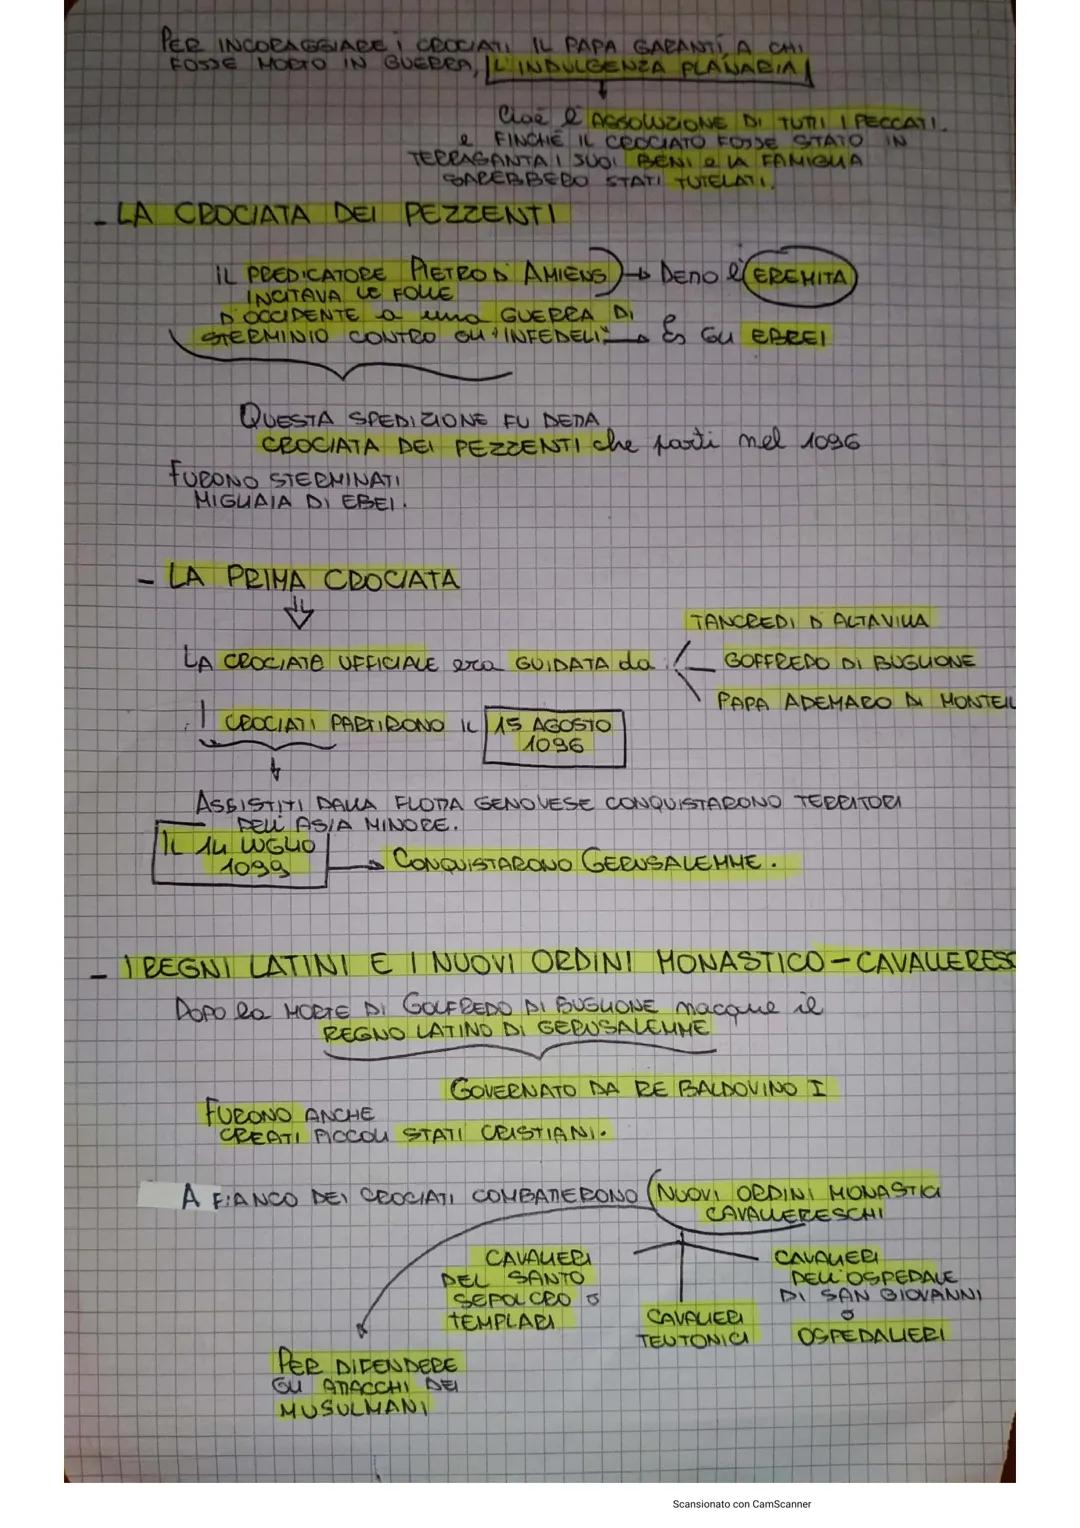 PER INCORAGGIARE i CROCIATI IL PAPA GARANTÌ A CHI
FOSSE MORTO IN GUERRA, L'INDULGENZA PLANARIA
Cioè l'ASSOLUZIONE DI TUTTI I PECCATI.
e FINCHÉ IL CROCIATO FOSSE STATO IN
TERRASANTA I SUOI BENI e LA FAMIGLIA
SAREBBERO STATI TUTELATI.
- LA CROCIATA DEI PEZZENTI
IL PREDICATORE PIETRO D'AMIENS → DETTO l'EREMITA
INCITAVA LE FOLLE
D'OCCIDENTE a una GUERRA DI
STERMINIO CONTRO GLI "INFEDELI" → Es GLI EBREI
QUESTA SPEDIZIONE FU DETTA
CROCIATA DEI PEZZENTI che partì nel 1096
FURONO STERMINATI
MIGLIAIA DI EBEI.
- LA PRIMA CROCIATA
TANCREDI D'ALTAVILLA
LA CROCIATA UFFICIALE era GUIDATA da
GOFFREDO DI BUGLIONE
PAPA ADEMARO DI MONTEIL
I CROCIATI PARTIRONO IL 15 AGOSTO
1096
ASSISTITI DALLA FLOTTA GENOVESE CONQUISTARONO TERRITORI
DELL'ASIA MINORE.
IL 14 LUGLIO
1099 → CONQUISTARONO GERUSALEMME.
- I REGNI LATINI E I NUOVI ORDINI MONASTICO-CAVALLERESC
DOPO la MORTE DI GOLFREDO DI BUGLIONE nacque il
REGNO LATINO DI GERUSALEMME
GOVERNATO DA RE BALDOVINO I
FURONO ANCHE
CREATI PICCOLI STATI CRISTIANI.
A FIANCO DEI CROCIATI COMBATTERONO NUOVI ORDINI MONASTICI
CAVALLERESCHI
CAVALIERI
DEL SANTO
SEPOLCRO o
TEMPLARI
CAVALIERI
TEUTONICI
CAVALIERI
DELL'OSPEDALE
DI SAN GIOVANNI
o
OSPEDALIERI
PER DIFENDERE
GLI ATTACCHI DEI
MUSULMANI
Scansionato con CamScanner